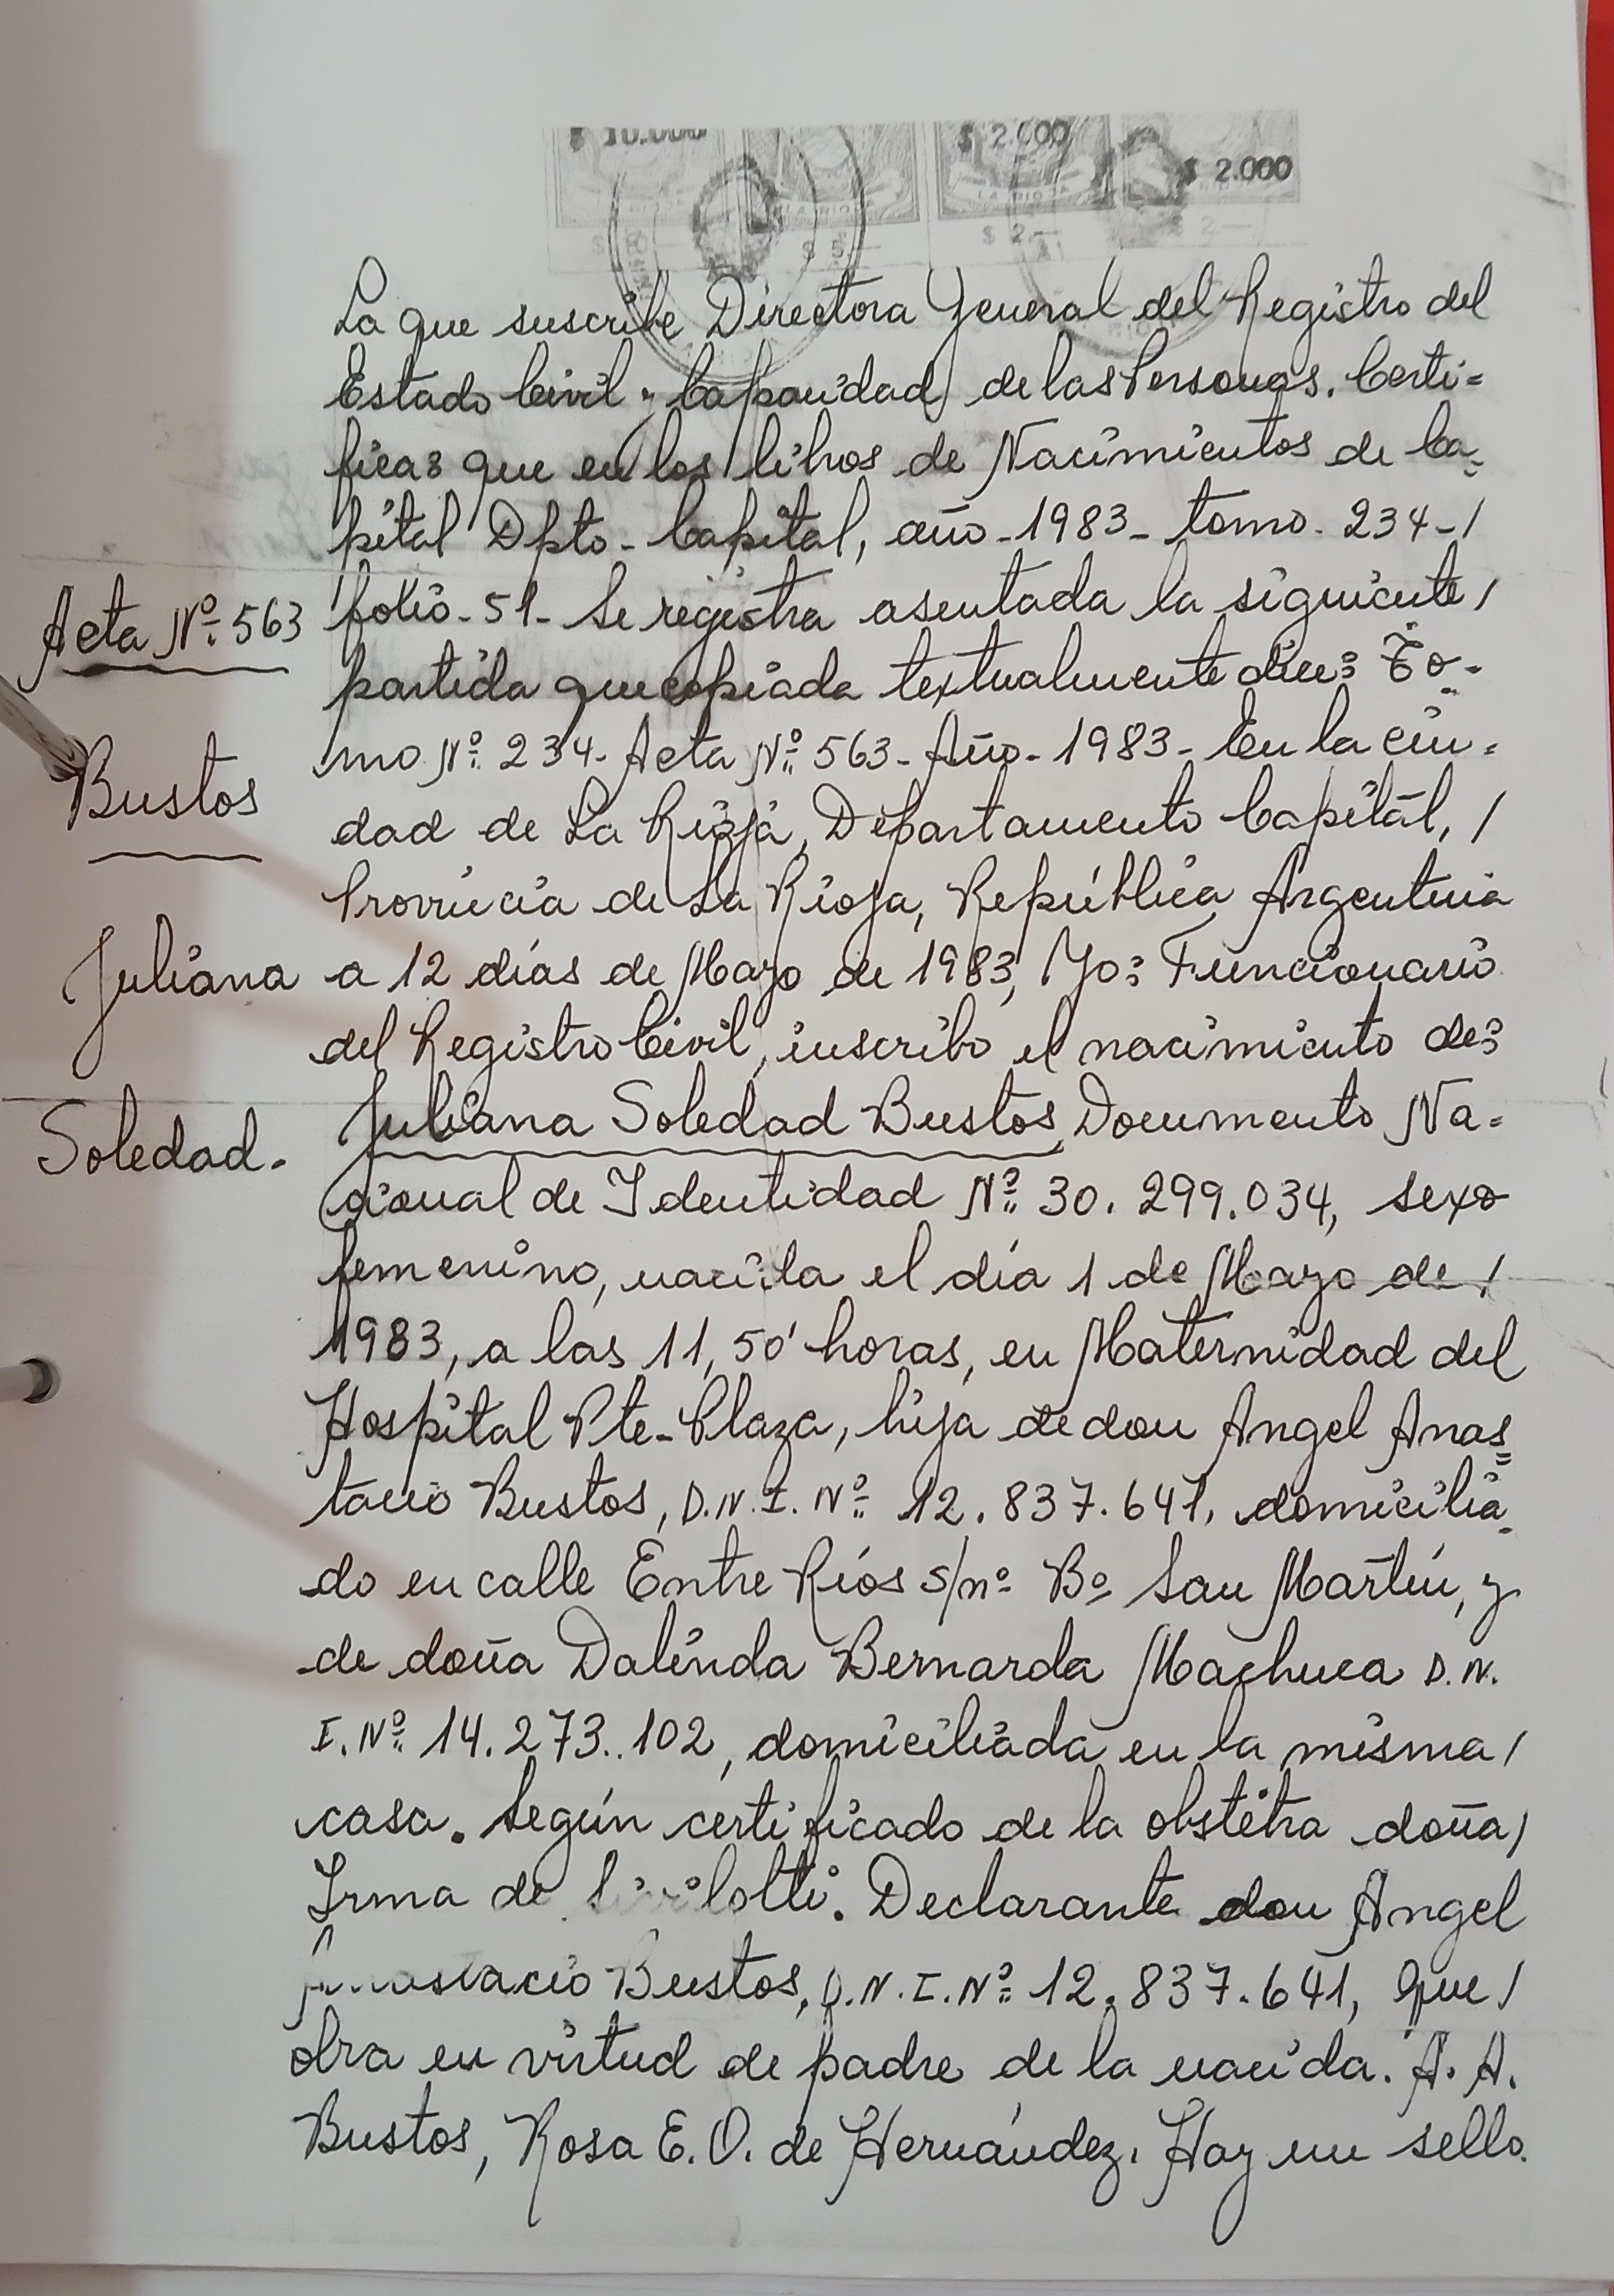 $ 10.000
$ 2.000
$ 2.000
LA RIOJA
$ 5.—
$ 2.—
$ 2.—
La que suscribe Directora General del Registro del
Estado Civil y Capacidad de las Personas. Certi=
fica: que en los libros de Nacimientos de Ca=
pital Dpto- Capital, año-1983- tomo-234-/
Acta Nº 563
folio-51- Se registra asentada la siguiente/
partida que copiada textualmente dice: To-
mo Nº 234- Acta Nº 563- Año-1983- En la ciu=
Bustos
dad de La Rioja, Departamento Capital, /
Provincia de La Rioja, República Argentina
Juliana
a 12 días de Mayo de 1983, Yo: Funcionario
del Registro Civil, inscribo el nacimiento de:
Soledad.
Juliana Soledad Bustos, Documento Na=
cional de Identidad Nº 30.299.034, sexo
femenino, nacida el día 1 de Mayo de /
1983, a las 11,50' horas, en Maternidad del
Hospital Pte-Plaza, hija de don Angel Anas=
tacio Bustos, D.N.I. Nº 12.837.641, domicilia=
do en calle Entre Ríos s/nº Bº San Martín, y
de doña Dalinda Bernarda Machuca D.N.
I. Nº 14.273.102, domiciliada en la misma/
casa. Según certificado de la obstétra doña/
Irma de Declarante don Angel
Anastacio Bustos, D.N.I. Nº 12.837.641, que/
obra en virtud de padre de la nacida. A. A.
Bustos, Rosa E. O. de Hernández. Hay un sello.